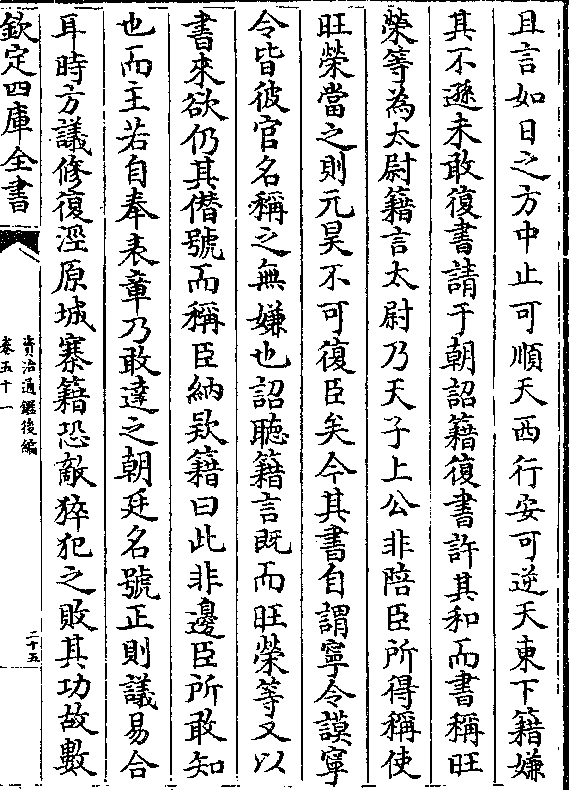 且言如日之方中止可順天西行安可逆天東下籍嫌
其不遜未敢復書請于朝詔籍復書許其和而書稱旺
榮等為太尉籍言太尉乃天子上公非陪臣所得稱使
旺榮當之則元昊不可復臣矣今其書自謂寧令謨寧
令皆彼官名稱之無嫌也詔聽籍言既而旺榮等又以
書來欲仍其僣號而稱臣納欵籍曰此非邊臣所敢知
也而主若自奉表章乃敢達之朝廷名號正則議易合
耳時方議修復涇原城寨籍恐敵猝犯之敗其功故數
欽定四庫全書
資治通鑑後編
卷五十一
二十五